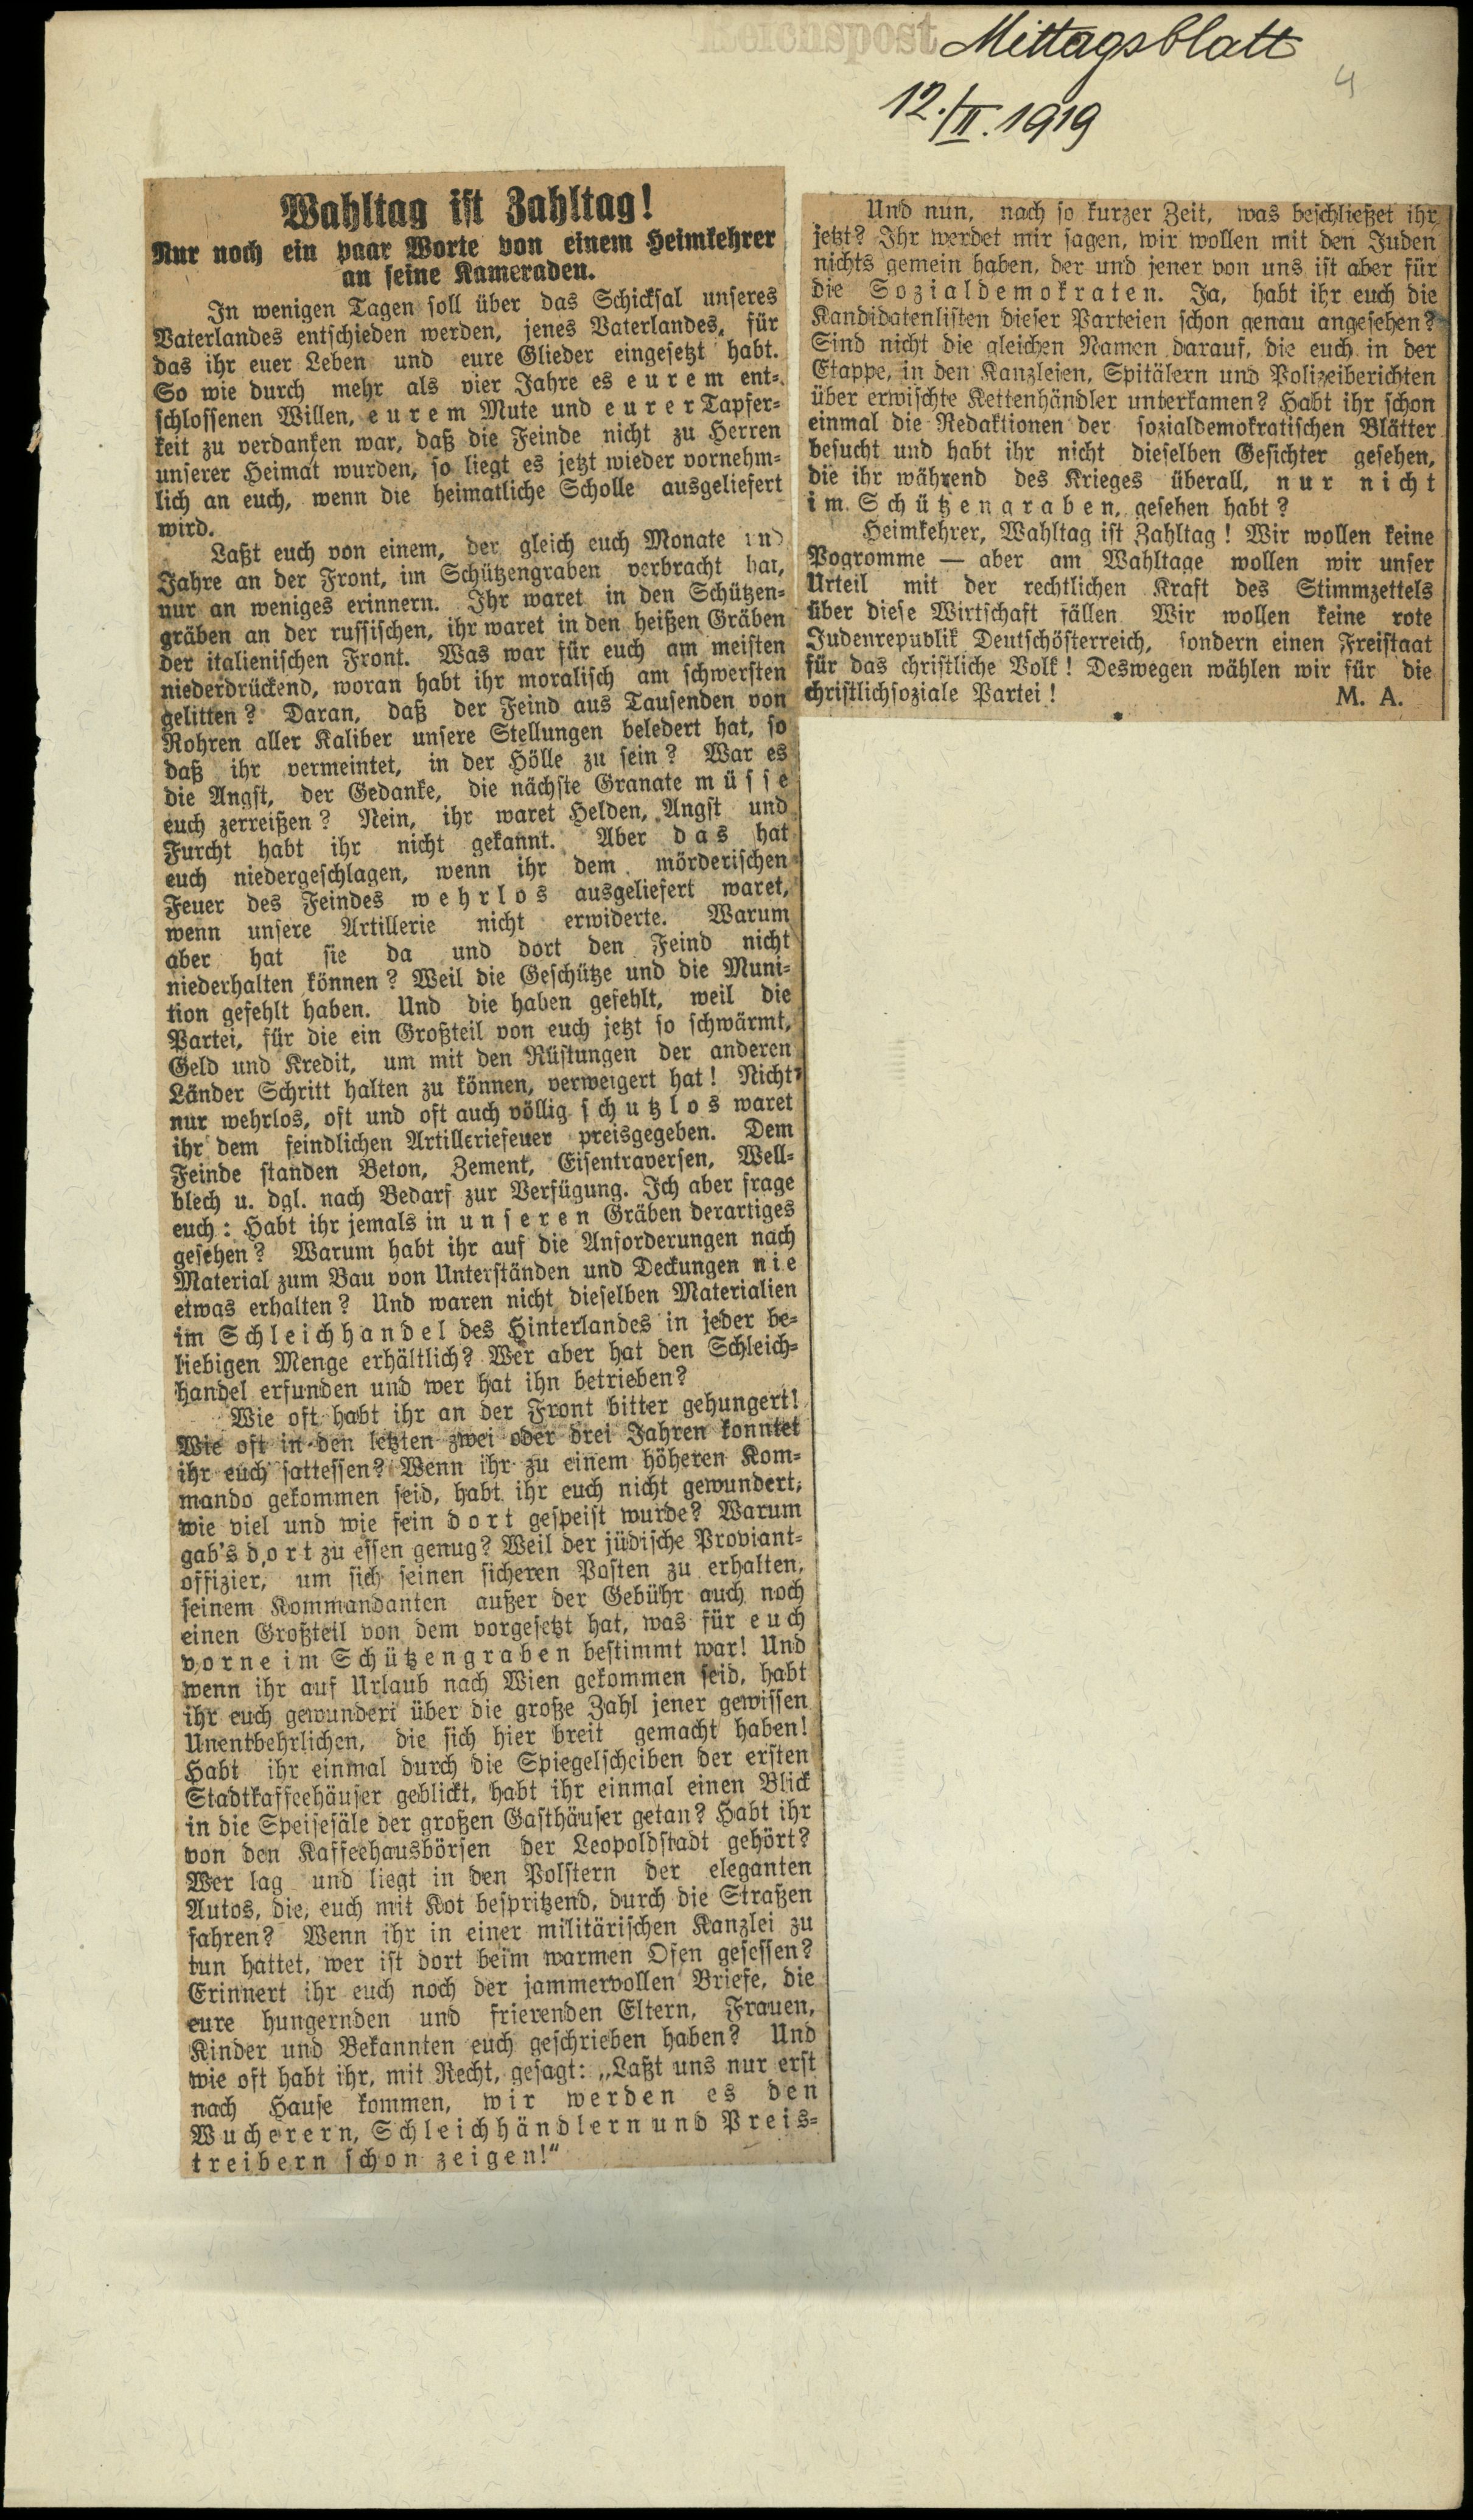 Reichspost Mittagsblatt
4
12./II. 1919
Wahltag ist Zahltag!
Nur noch ein paar Worte von einem Heimkehrer
an seine Kameraden.
In wenigen Tagen soll über das Schicksal unseres
Vaterlandes entschieden werden, jenes Vaterlandes, für
das ihr euer Leben und eure Glieder eingesetzt habt.
So wie durch mehr als vier Jahre es eurem ent-
schlossenen Willen, eurem Mute und eurer Tapfer-
keit zu verdanken war, daß die Feinde nicht zu Herren
unserer Heimat wurden, so liegt es jetzt wieder vornehm-
lich an euch, wenn die heimatliche Scholle ausgeliefert
wird.
Laßt euch von einem, der gleich euch Monate und
Jahre an der Front, im Schützengraben verbracht hat,
nur an weniges erinnern. Ihr waret in den Schützen-
gräben an der russischen, ihr waret in den heißen Gräben
der italienischen Front. Was war für euch am meisten
niederdrückend, woran habt ihr moralisch am schwersten
gelitten? Daran, daß der Feind aus Tausenden von
Rohren aller Kaliber unsere Stellungen beledert hat, so
daß ihr vermeintet, in der Hölle zu sein? War es
die Angst, der Gedanke, die nächste Granate müsse
euch zerreißen? Nein, ihr waret Helden, Angst und
Furcht habt ihr nicht gekannt. Aber das hat
euch niedergeschlagen, wenn ihr dem mörderischen
Feuer des Feindes wehrlos ausgeliefert waret,
wenn unsere Artillerie nicht erwiderte. Warum
aber hat sie da und dort den Feind nicht
niederhalten können? Weil die Geschütze und die Muni-
tion gefehlt haben. Und die haben gefehlt, weil die
Partei, für die ein Großteil von euch jetzt so schwärmt,
Geld und Kredit, um mit den Rüstungen der anderen
Länder Schritt halten zu können, verweigert hat! Nicht
nur wehrlos, oft und oft auch völlig schutzlos waret
ihr dem feindlichen Artilleriefeuer preisgegeben. Dem
Feinde standen Beton, Zement, Eisentraversen, Well-
blech u. dgl. nach Bedarf zur Verfügung. Ich aber frage
euch: Habt ihr jemals in unseren Gräben derartiges
gesehen? Warum habt ihr auf die Anforderungen nach
Material zum Bau von Unterständen und Deckungen nie
etwas erhalten? Und waren nicht dieselben Materialien
im Schleichhandel des Hinterlandes in jeder be-
liebigen Menge erhältlich? Wer aber hat den Schleich-
handel erfunden und wer hat ihn betrieben?
Wie oft habt ihr an der Front bitter gehungert!
Wie oft in den letzten zwei oder drei Jahren konntet
ihr euch sattessen? Wenn ihr zu einem höheren Kom-
mando gekommen seid, habt ihr euch nicht gewundert,
wie viel und wie fein dort gespeist wurde? Warum
gab's dort zu essen genug? Weil der jüdische Proviant-
offizier, um sich seinen sicheren Posten zu erhalten,
seinem Kommandanten außer der Gebühr auch noch
einen Großteil von dem vorgesetzt hat, was für euch
vorne im Schützengraben bestimmt war! Und
wenn ihr auf Urlaub nach Wien gekommen seid, habt
ihr euch gewundert über die große Zahl jener gewissen
Unentbehrlichen, die sich hier breit gemacht haben!
Habt ihr einmal durch die Spiegelscheiben der ersten
Stadtkaffeehäuser geblickt, habt ihr einmal einen Blick
in die Speisesäle der großen Gasthäuser getan? Habt ihr
von den Kaffeehausbörsen der Leopoldstadt gehört?
Wer lag und liegt in den Polstern der eleganten
Autos, die, euch mit Kot bespritzend, durch die Straßen
fahren? Wenn ihr in einer militärischen Kanzlei zu
tun hattet, wer ist dort beim warmen Ofen gesessen?
Erinnert ihr euch noch der jammervollen Briefe, die
eure hungernden und frierenden Eltern, Frauen,
Kinder und Bekannten euch geschrieben haben? Und
wie oft habt ihr, mit Recht, gesagt: „Laßt uns nur erst
nach Hause kommen, wir werden es den
Wucherern, Schleichhändlern und Preis-
treibern schon zeigen!“
Und nun, nach so kurzer Zeit, was beschließet ihr
jetzt? Ihr werdet mir sagen, wir wollen mit den Juden
nichts gemein haben, der und jener von uns ist aber für
die Sozialdemokraten. Ja, habt ihr euch die
Kandidatenlisten dieser Parteien schon genau angesehen?
Sind nicht die gleichen Namen darauf, die euch in der
Etappe, in den Kanzleien, Spitälern und Polizeiberichten
über erwischte Kettenhändler unterkamen? Habt ihr schon
einmal die Redaktionen der sozialdemokratischen Blätter
besucht und habt ihr nicht dieselben Gesichter gesehen,
die ihr während des Krieges überall, nur nicht
im Schützengraben, gesehen habt?
Heimkehrer, Wahltag ist Zahltag! Wir wollen keine
Pogromme — aber am Wahltage wollen wir unser
Urteil mit der rechtlichen Kraft des Stimmzettels
über diese Wirtschaft fällen. Wir wollen keine rote
Judenrepublik Deutschösterreich, sondern einen Freistaat
für das christliche Volk! Deswegen wählen wir für die
christlichsoziale Partei! M. A.